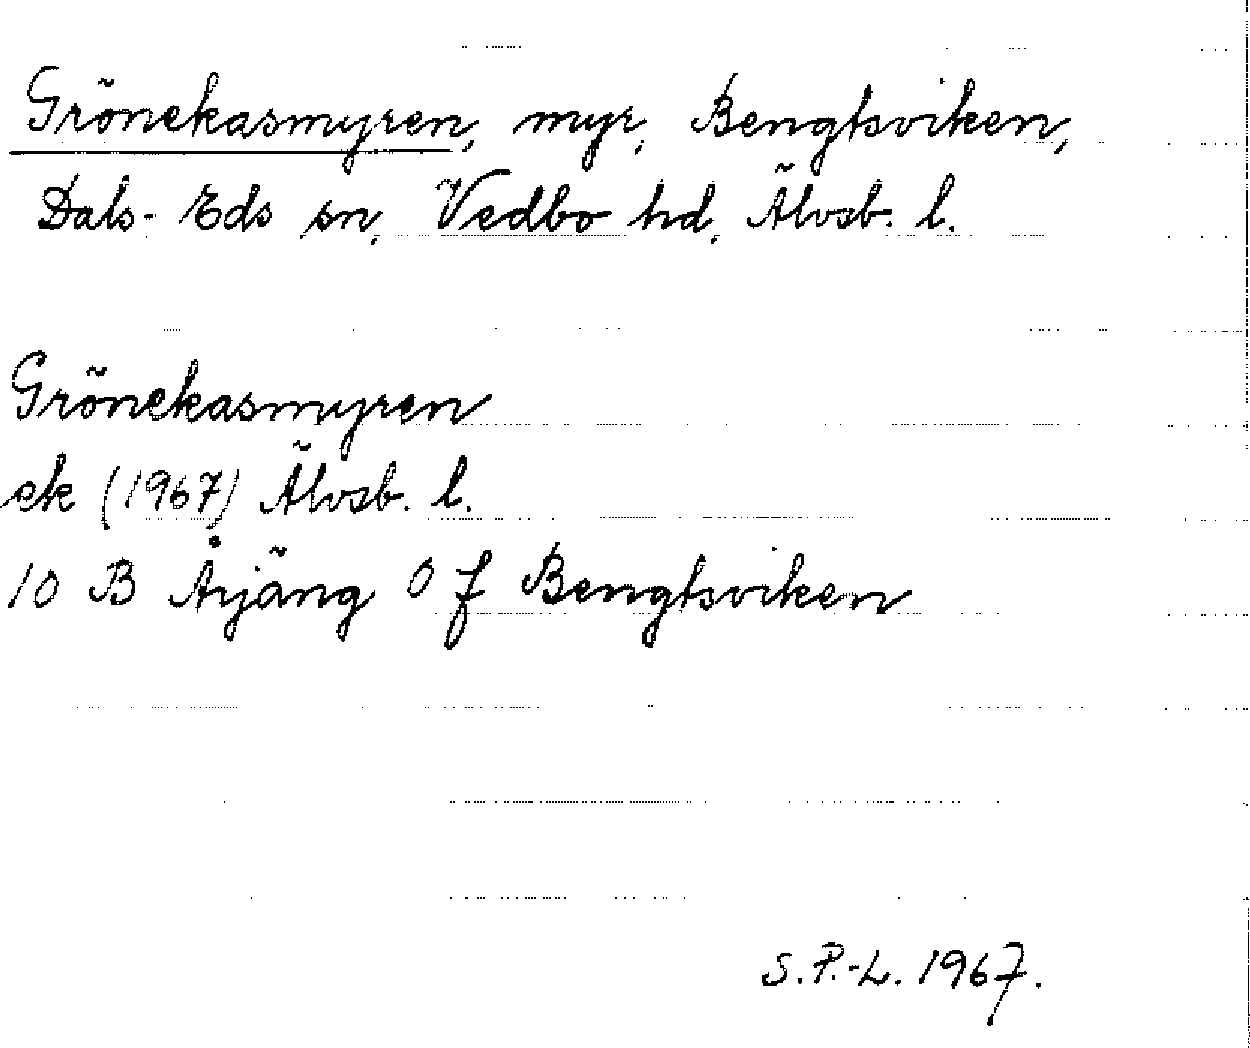 Grönekasmyren, myr, Bengtsviken,
Dals-Eds sn, Vedbo hd, Älvsb. l.
Grönekasmyren
ek (1967) Älvsb. l.
10 B Årjäng 0 f Bengtsviken
S.P.-L. 1967.